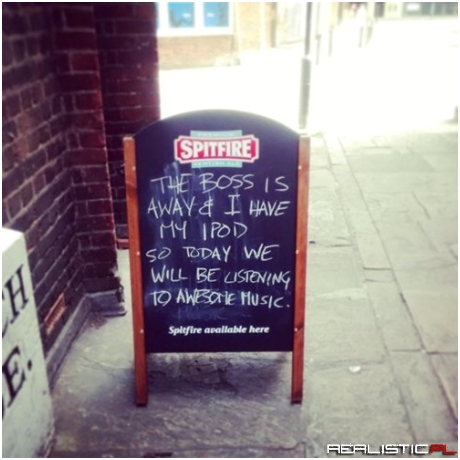 PREMIUM
SPITFIRE
KENTISH ALE
THE BOSS IS
AWAY & I HAVE
MY IPOD
SO TODAY WE
WILL BE LISTENING
TO AWESOME MUSIC.
Spitfire available here
H
E.
REALISTICPL